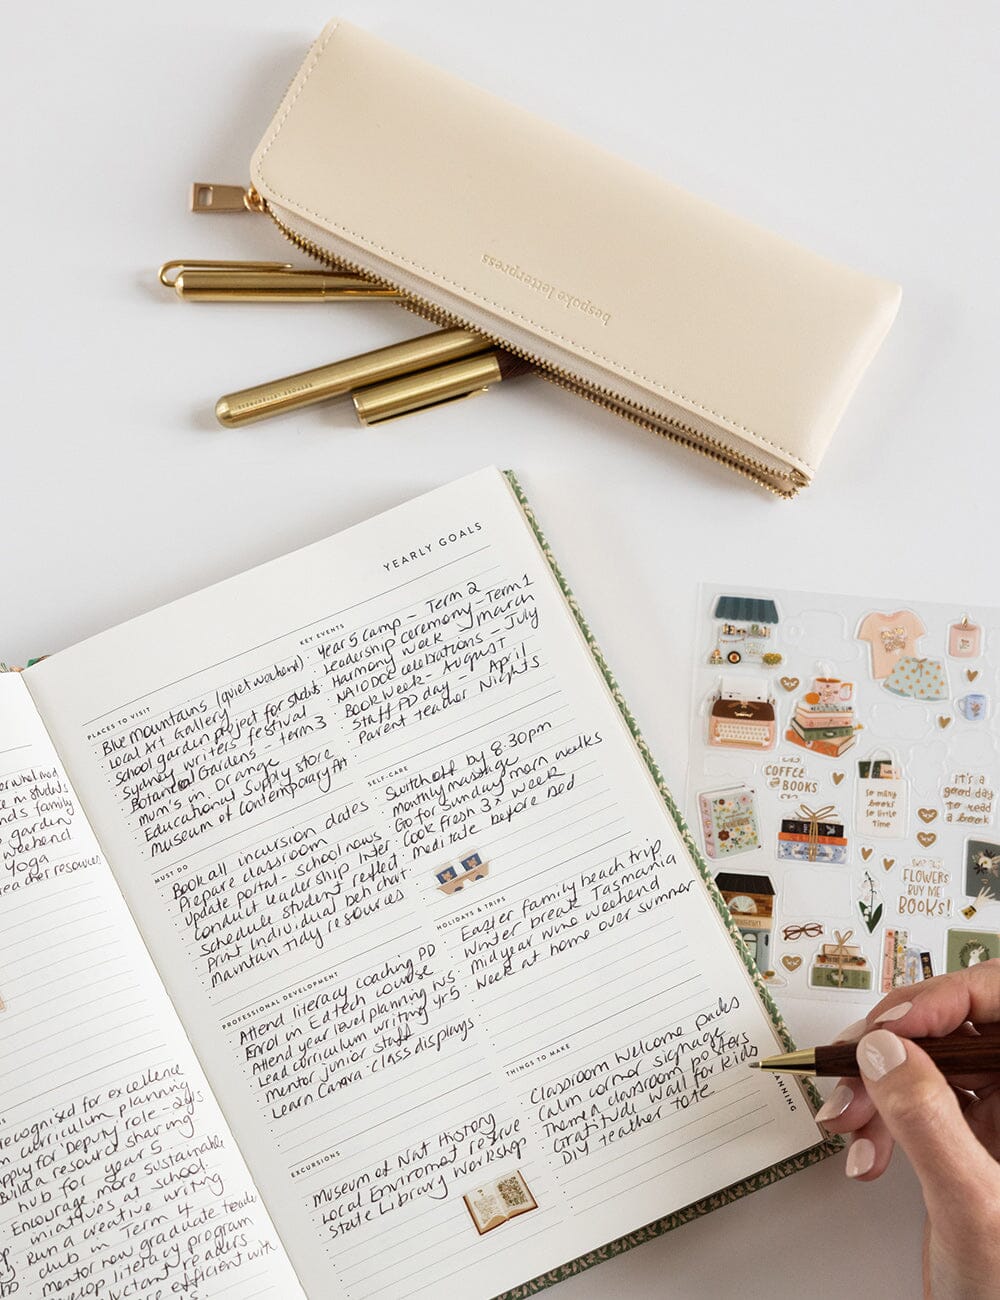 bespoke letterpress
BESPOKE LETTERPRESS
YEARLY GOALS
KEY EVENTS
Year 5 camp - Term 2
Leadership Ceremony - Term 1
Harmony Week - March
NAIDOC celebrations - July
Book Week - August
Staff PD day - April
Parent Teacher Nights
PLACES TO VISIT
Blue Mountains (quiet weekend)
Local Art Gallery
School garden project for studs
Sydney Writers' festival
Botanical Gardens - term 3
Mum's in Orange
Educational Supply store
Museum of Contemporary Art
SELF-CARE
Switch off by 8:30pm
Monthly massage
Go for Sunday morn walks
Cook fresh 3x week
meditate before bed
MUST DO
Book all incursion dates
Prepare classroom
Update portal - school news
Conduct leadership inter
Schedule student reflect.
Print individual beh chart
Maintain tidy resources
HOLIDAYS & TRIPS
Easter family beach trip
Winter break Tasmania
Midyear wine weekend
Week at home over summer
PROFESSIONAL DEVELOPMENT
Attend literacy coaching PD
Enrol in Edtech course
Attend year level planning
Lead curriculum writing yr5
mentor junior staff
Learn Canva - class displays
THINGS TO MAKE
Classroom Welcome packs
Calm corner signage
Theme a classroom posters
Gratitude Wall for kids
DIY teacher tote
EXCURSIONS
Museum of Nat History
Local Enviromet reserve
State Library Workshop
PLANNING
weekend
Yoga
recognised for excellence
in curriculum planning
apply for Deputy role - 2yrs
Build a resource sharing
hub for year 5
Encourage more sustainable
initiatives at school.
Run a creative writing
club in Term 4
mentor new graduate teache
develop literacy program
reluctant readers
more efficient with
COFFEE & BOOKS
so many
books
so little
time
it's a
good day
to read
a book
FLOWERS
BUY ME
BOOKS!